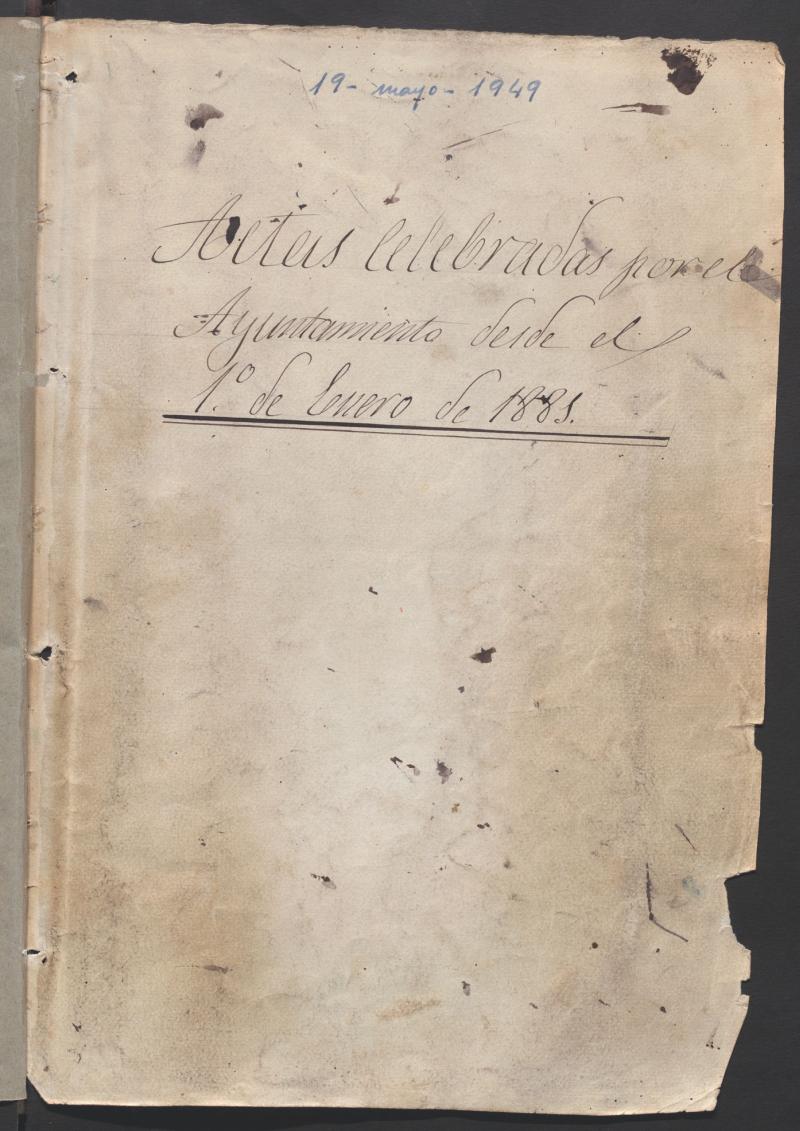 19- mayo- 1949
Actas celebradas por el
Ayuntamiento desde el
1.º de Enero de 1881.